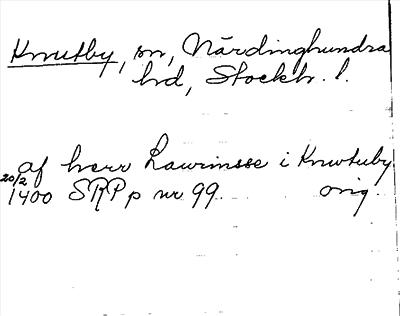 Knutby, sn, Närdinghundra
hd, Stockh. l.
af herr Laurinsse i Knwtuby
20/2 1400 SRP p nr 99. orig.